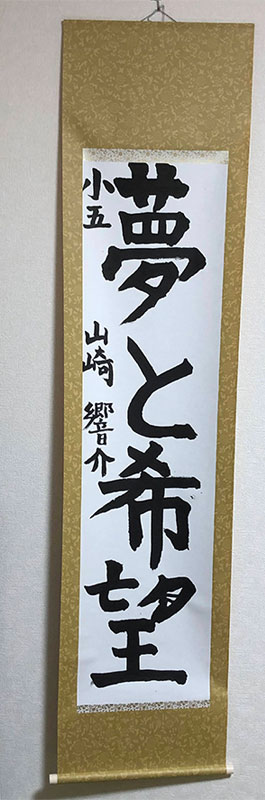 夢と希望
小五 山崎 響介